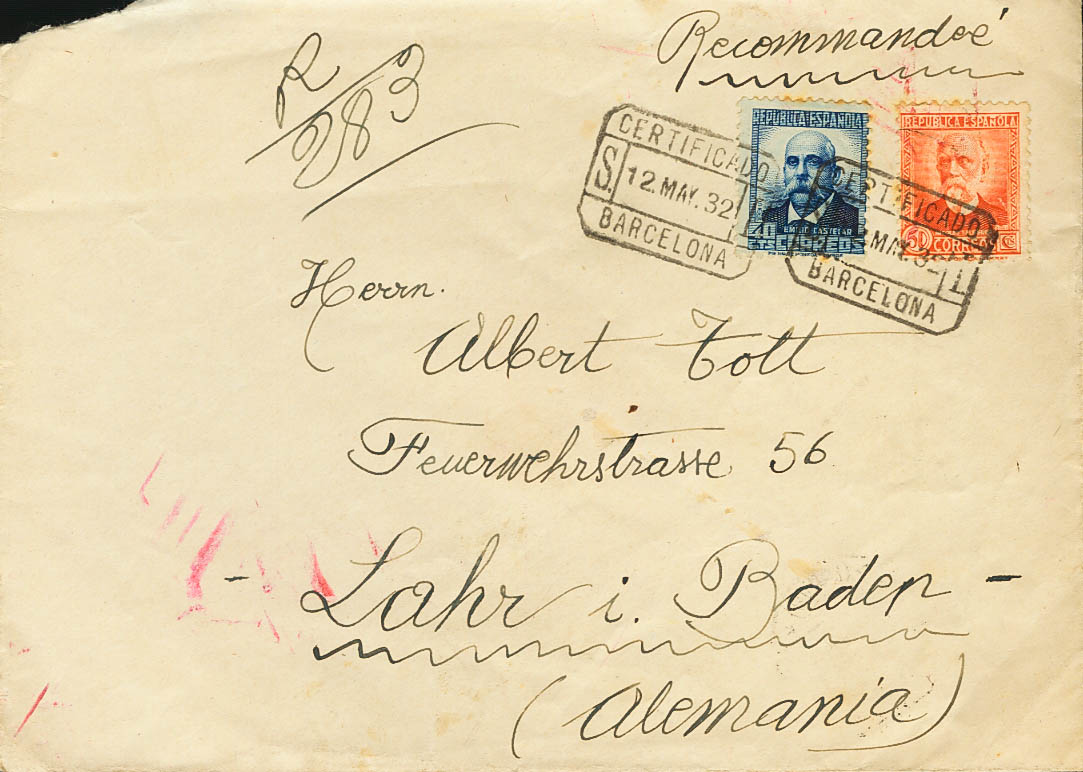 Recommandée
R
283
REPUBLICA ESPAÑOLA
EMILIO CASTELAR
40 CTS CORREOS
REPUBLICA ESPAÑOLA
50 CORREOS CTS
CERTIFICADO
S. 12.MAY.32
BARCELONA
CERTIFICADO
MAY.32 1.
BARCELONA
Herrn.
Albert Tott
Feuerwehrstrasse 56
- Lahr i. Baden -
(Alemania)